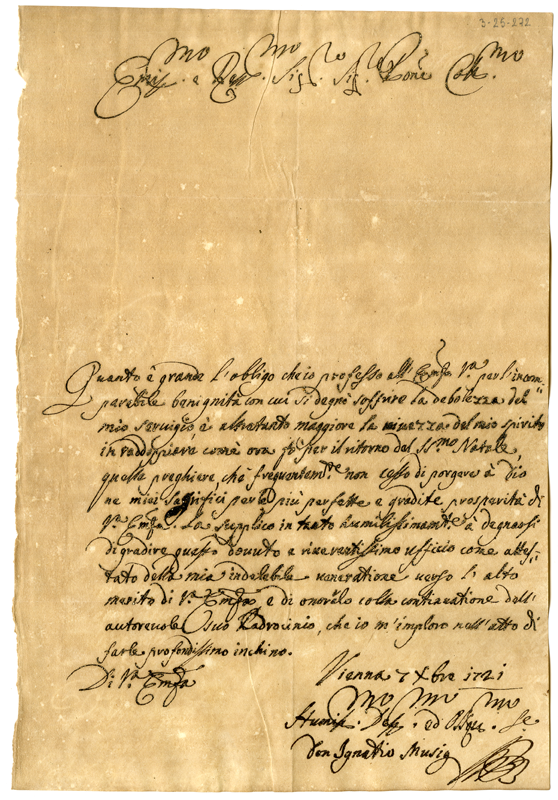 3-25-272
Em.mo e Rev.mo Sig.r Sig.r P.rone Col.mo
Quanto è grande l'obligo che io professo all'Em.za V.ra per l'incom=
parabile benignità con cui si degnò soffrire la debolezza del
mio servigio è altretanto maggiore la vivezza del mio spirito
in raddoppiare come ora fò per il ritorno del SS.mo Natale,
quelle preghiere, che frequentem.te non cesso di porgere à Dio
ne miei sagrifici per le più perfette e gradite prosperità di
V.ra Em.za. La supplico in tanto humilissimam.te à degnarsi
di gradire questo dovuto e riverentissimo ufficio come attes=
tato della mia indelebile veneratione verso l'alto
merito di V.ra Em.za e di onorarlo colla continuatione dell'
autorevole suo Padrocinio, che io m'imploro nell'atto di
farle profondissimo inchino.
Di V.ra Em.za
Vienna 7 Xbre 1721
Humil.mo Dev.mo ed Obl.mo Se.
Don Ignatio Musig